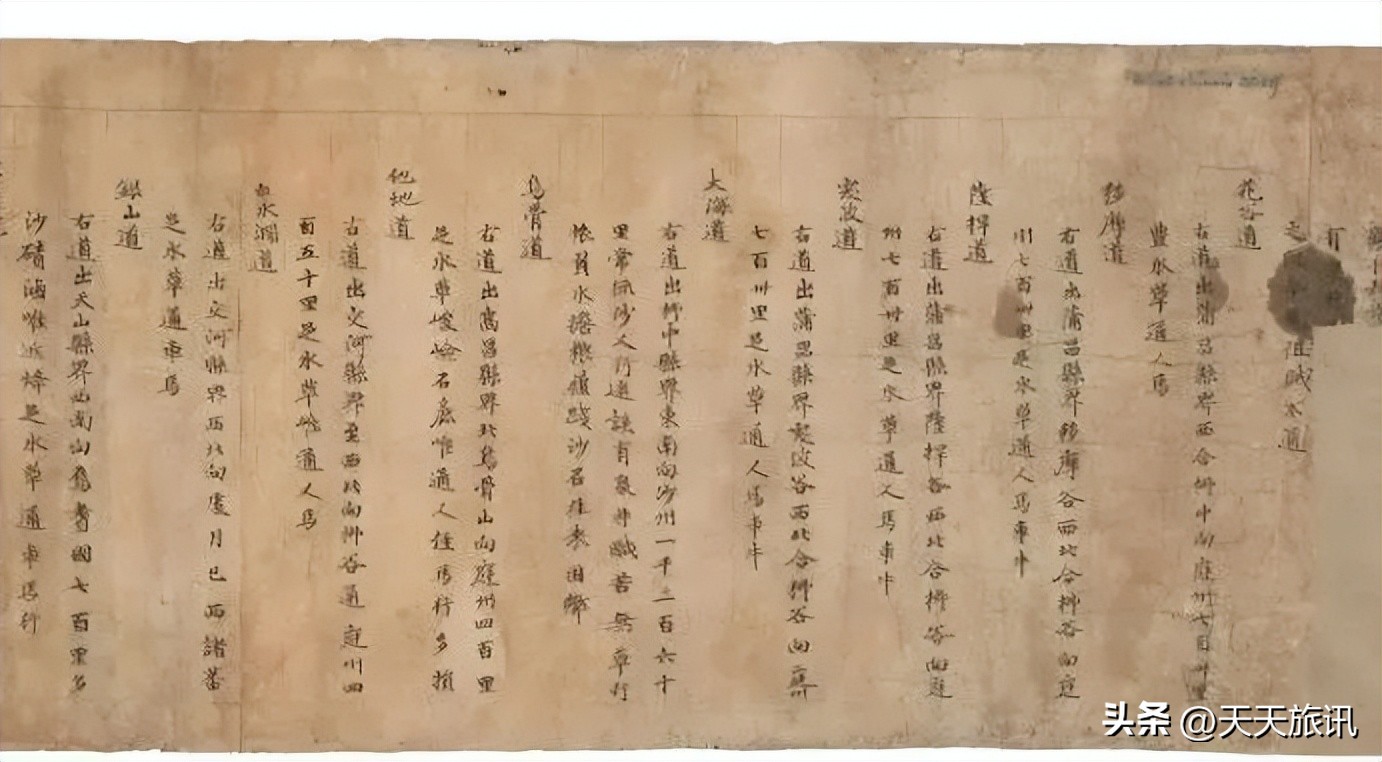 阻賊不通
花谷道
右道出蒲昌縣界西合柳中向庭州七百卅里
豐水草通人馬
移摩道
右道出蒲昌縣界移摩谷西北合柳谷向庭
州七百卅里足水草通人馬車牛
薩捍道
右道出蒲昌縣界薩捍谷西北合柳谷向庭
州七百卅里足水草通人馬車牛
突波道
右道出蒲昌縣界突波谷西北合柳谷向庭州
七百卅里足水草通人馬車牛
大海道
右道出柳中縣界東南向沙州一千三百六十
里常流沙人行迷誤有泉井鹹苦無草行
旅負水擔糧履踐沙石往來困弊
烏骨道
右道出高昌縣界北烏骨山向庭州四百里
足水草峻嶮石麁唯通人徑馬行多損
他地道
右道出交河縣界至西北向柳谷通庭州四
百五十里足水草唯通人馬
白水澗道
右道出交河縣界西北向處月已西諸蕃
足水草通車馬
銀山道
右道出天山縣界西南向焉耆國七百里多
沙磧滷唯近烽足水草通車馬行
头条 @天天旅讯